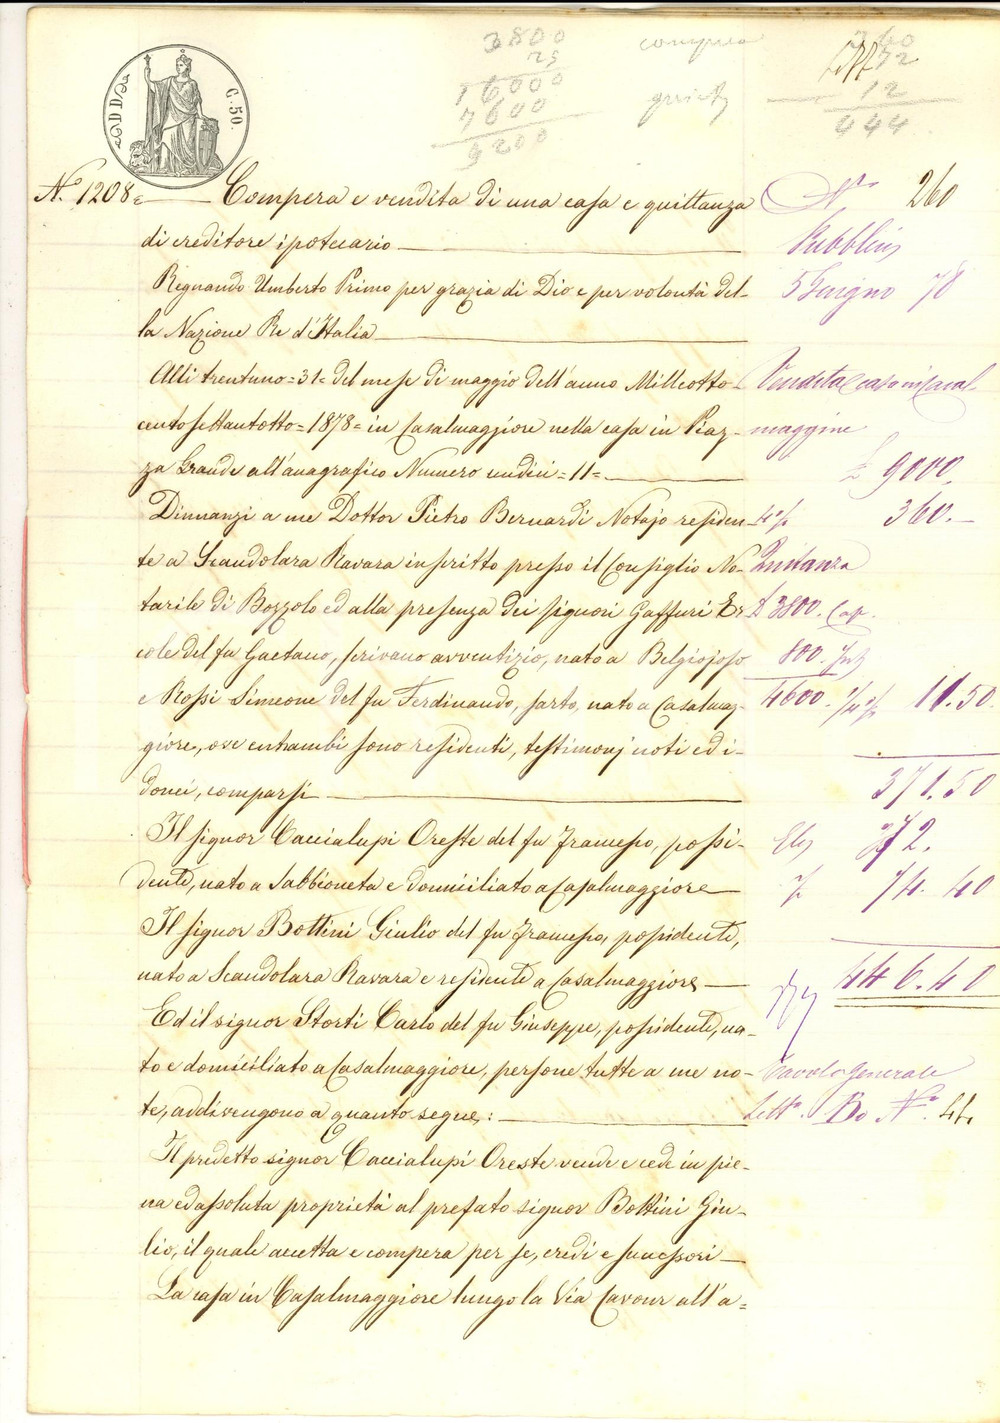 3800 compra 360
25 72
16000 12
7600 444
9200
C. 50.
N.° 1208 Compera e vendita di una casa e quittanza
di creditore ipotecario
Regnando Umberto Primo per grazia di Dio e per volontà del-
la Nazione Re d'Italia
Alli trentuno=31= del mese di maggio dell'anno Milleotto-
centosettantotto=1878= in Casalmaggiore nella casa in Piaz-
za Grande all'anagrafico Numero undici=11=
Dinnanzi a me Dottor Pietro Bernardi Notajo residen-
te a Scandolara Ravara inscritto presso il Consiglio No-
tarile di Bozzolo ed alla presenza dei signori Gaffuri Er-
cole del fu Gaetano, scrivano avventizio, nato a Belgiojoso
e Rossi Simeone del fu Ferdinando, sarto, nato a Casalmag-
giore, ove entrambi sono residenti, testimonj noti ed i-
donei, comparsi
Il signor Caccialupi Oreste del fu Francesco, possi-
dente, nato a Sabbioneta e domiciliato a Casalmaggiore
Il signor Bottini Giulio del fu Francesco, possidente,
nato a Scandolara Ravara e residente a Casalmaggiore
Ed il signor Storti Carlo del fu Giuseppe, possidente, na-
to e domiciliato a Casalmaggiore, persone tutte a me no-
te, addivengono a quanto segue:
Il predetto signor Caccialupi Oreste vende e cede in pie-
na ed assoluta proprietà al prefato signor Bottini Giu-
lio, il quale accetta e compera per se, eredi e successori
La casa in Casalmaggiore lungo la Via Cavour all'a-
N° 260
Pubblici
5 Giugno 78
Vendita casa in Casal-
maggiore
£ 9000.
4 % 360.
Quitanza
£ 3800. Cap.
800. Int
4600. 11.50
371.50
72.
74.40
446.40
Tavola Generale
Lett. Bo N° 44